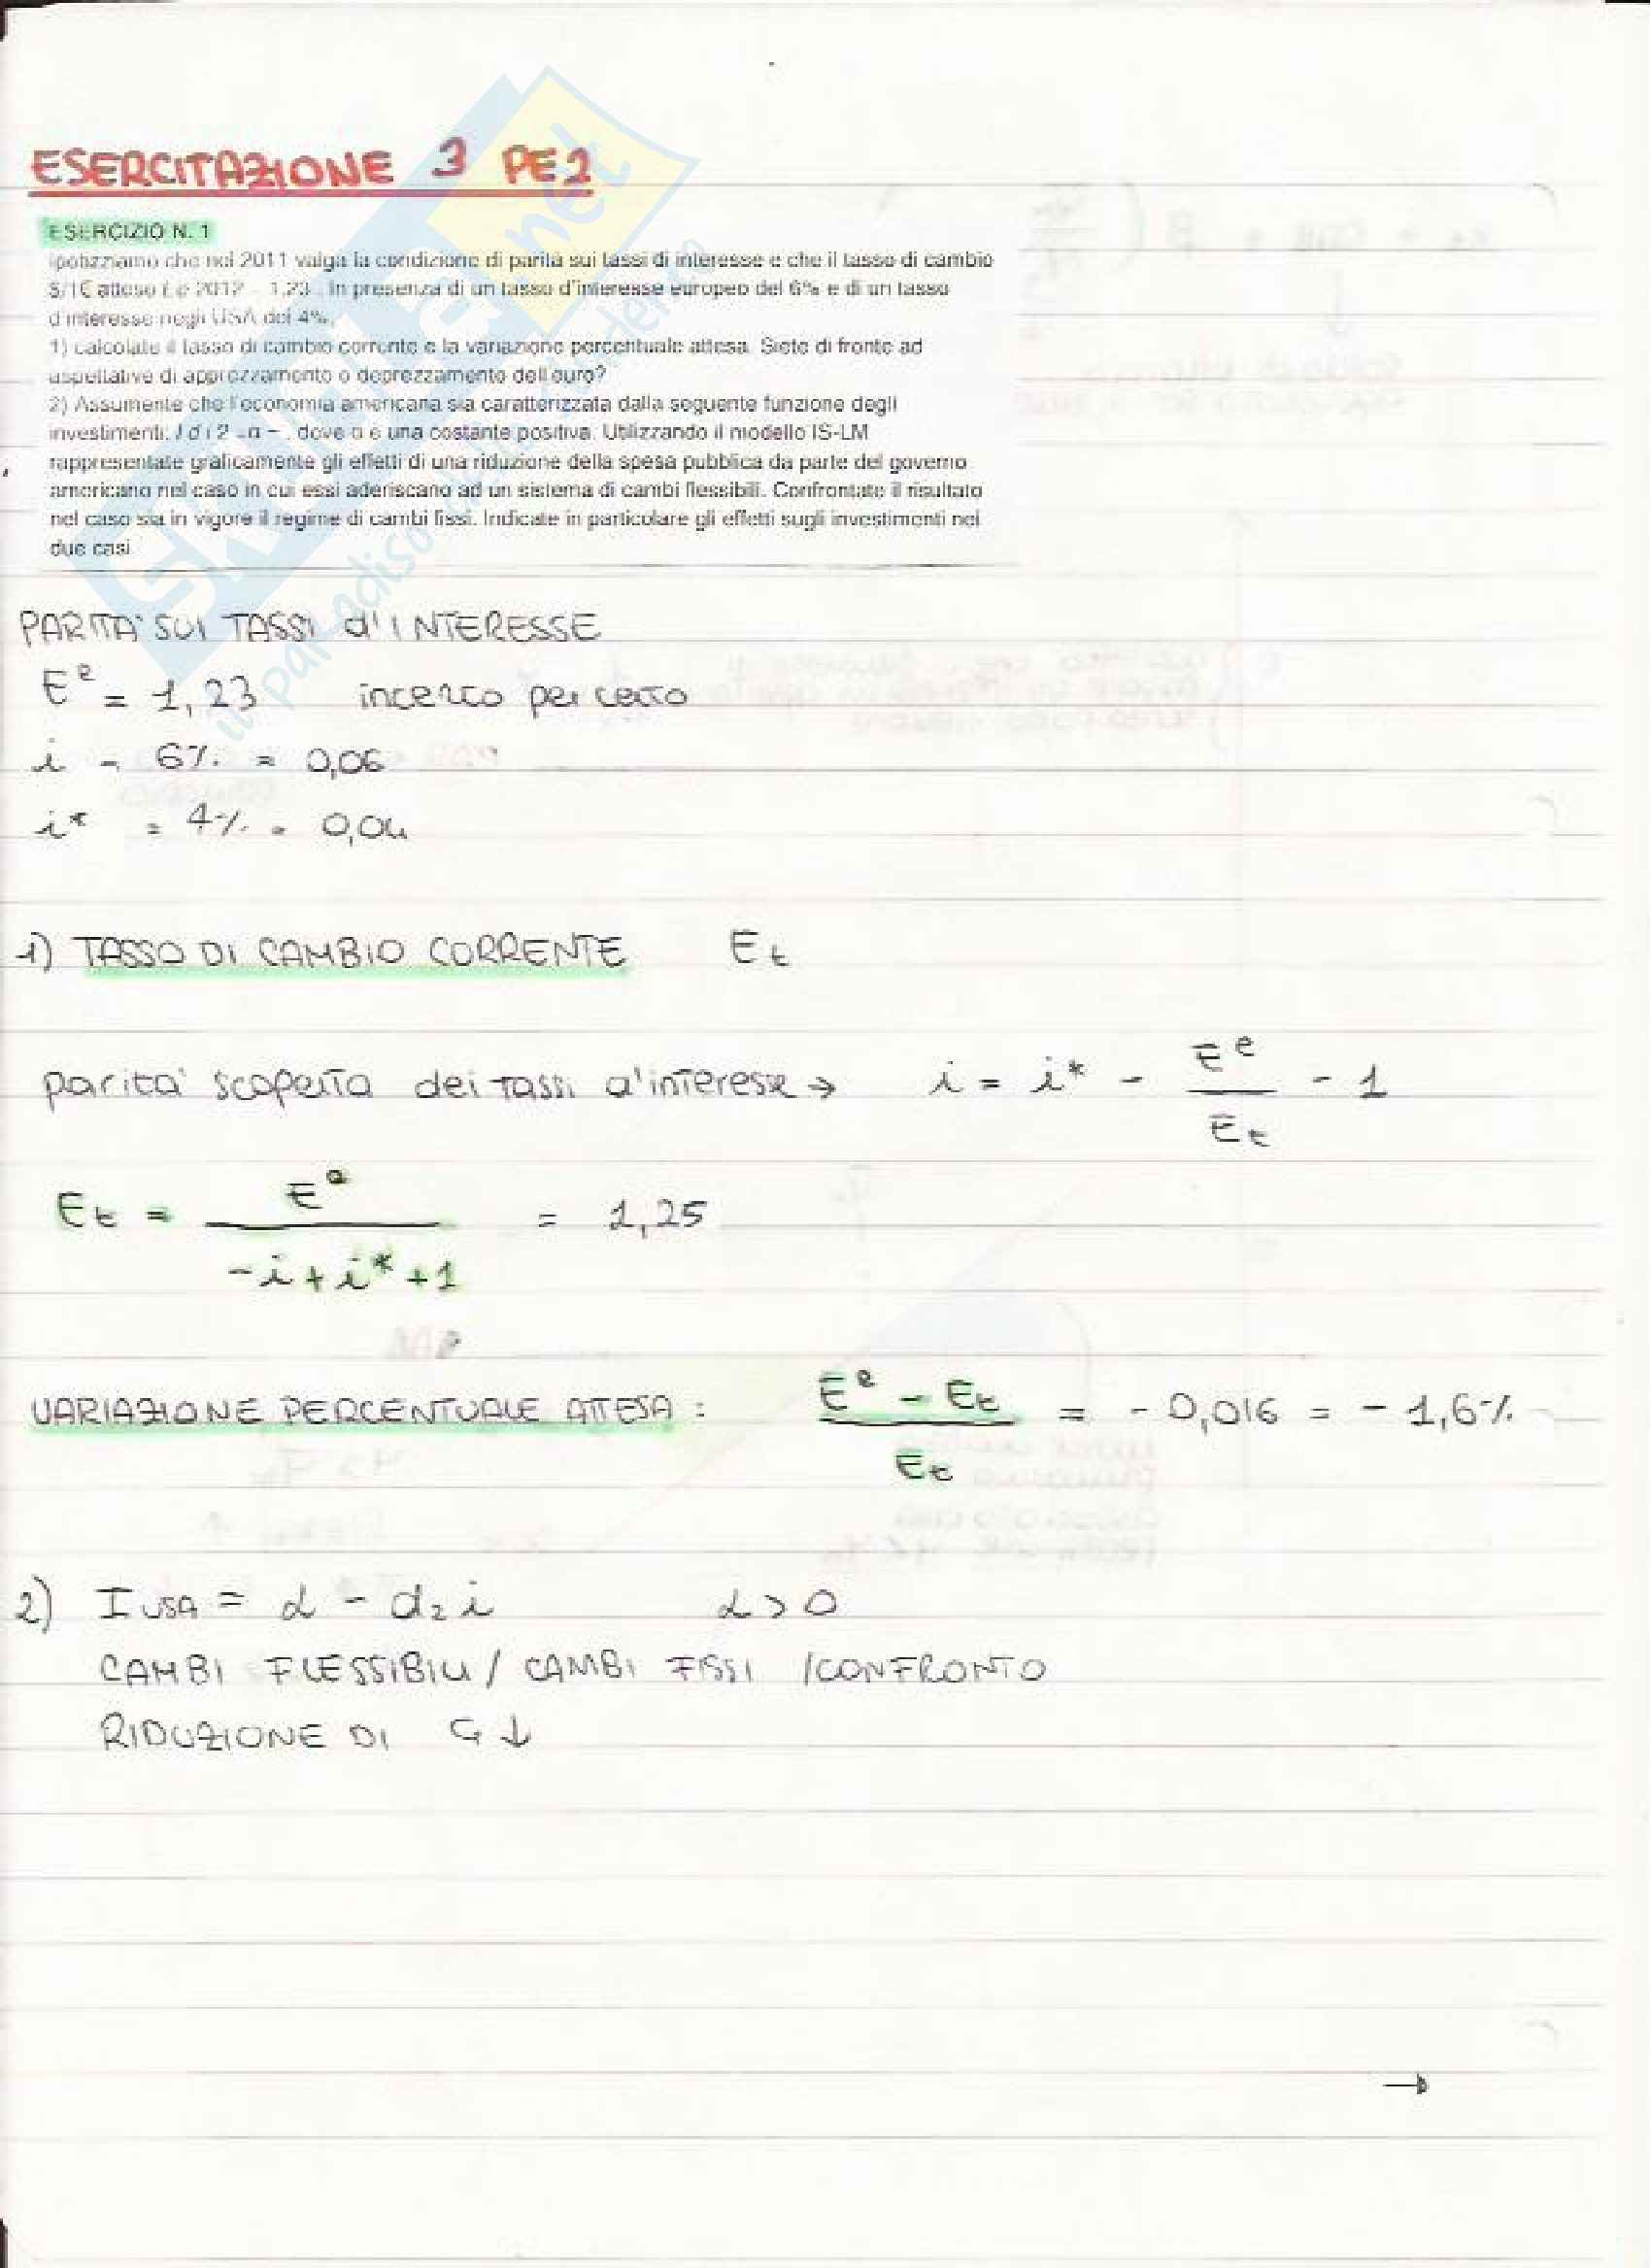 ESERCITAZIONE 3 PE2
ESERCIZIO N. 1
Ipotizziamo che nel 2011 valga la condizione di parità sui tassi di interesse e che il tasso di cambio
$/1€ atteso E e 2012 = 1,23 . In presenza di un tasso d'interesse europeo del 6% e di un tasso
d'interesse negli USA del 4%,
1) calcolate il tasso di cambio corrente e la variazione percentuale attesa. Siete di fronte ad
aspettative di apprezzamento o deprezzamento dell'euro?
2) Assumente che l'economia americana sia caratterizzata dalla seguente funzione degli
investimenti: I d i 2 = α − , dove α è una costante positiva. Utilizzando il modello IS-LM
rappresentate graficamente gli effetti di una riduzione della spesa pubblica da parte del governo
americano nel caso in cui essi aderiscano ad un sistema di cambi flessibili. Confrontate il risultato
nel caso sia in vigore il regime di cambi fissi. Indicate in particolare gli effetti sugli investimenti nei
due casi.
PARITA' SUI TASSI d'INTERESSE
E^e = 1,23 incerto per certo
i = 6% = 0,06
i* = 4% = 0,04
1) TASSO DI CAMBIO CORRENTE E_t
parita' scoperta dei tassi d'interesse → i = i* - E^e/E_t - 1
E_t = E^e/(-i + i* + 1) = 1,25
VARIAZIONE PERCENTUALE ATTESA : (E^e - E_t)/E_t = - 0,016 = - 1,6%
2) I USA = α - d₂ i α > 0
CAMBI FLESSIBILI / CAMBI FISSI / CONFRONTO
RIDUZIONE DI G ↓
→